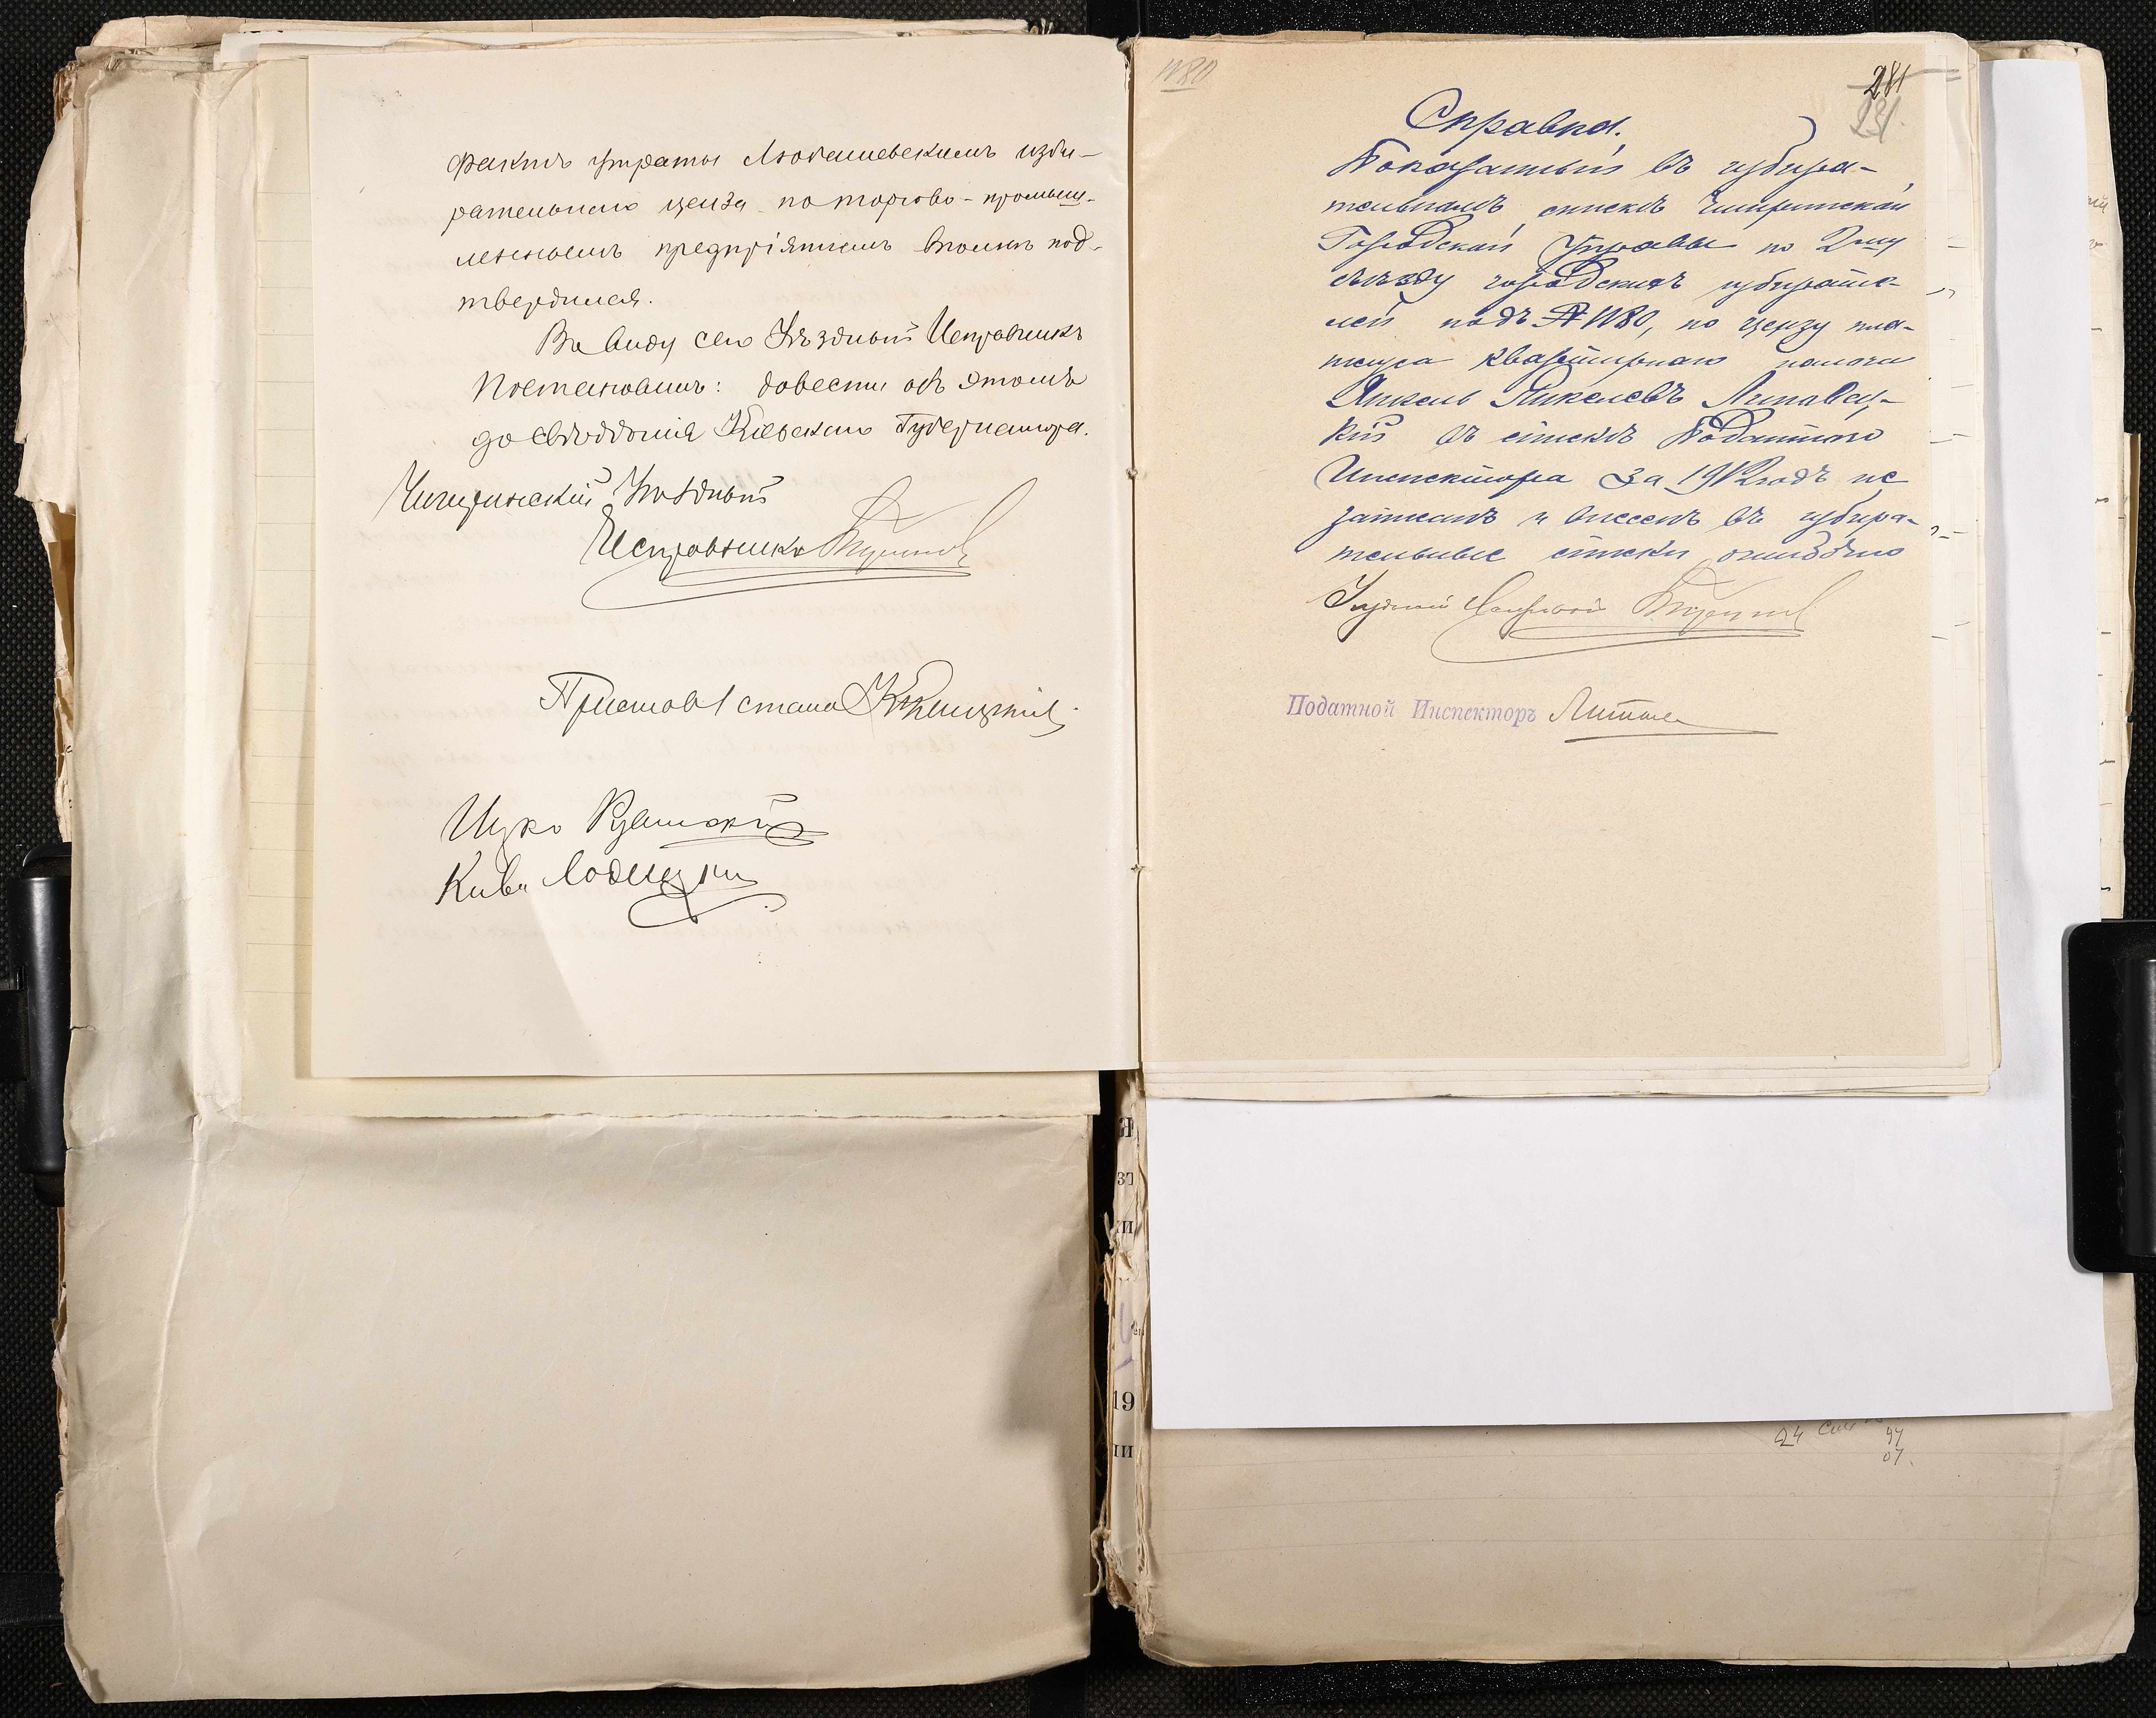 фактъ утраты Любашевскимъ изби-
рательнаго ценза по торгово-промыш-
леннымъ предпріятіямъ вполнѣ под-
твердился.
Въ виду сего Уѣздный Исправникъ
Постановилъ: довести объ этомъ
до свѣдѣнія Кіевскаго Губернатора.
Чигиринскій Уѣздный
Исправникъ
Приставъ 1 стана
Ицко
Кива
1180
281
Справка.
Показанный въ избира-
тельномъ спискѣ Чигиринской
Городской Управы по 2му
съѣзду городскихъ избирате-
лей подъ № 1180, по цензу пла-
тежа квартирнаго налога
Янкель Янкелевъ Липавец-
кій въ спискѣ Податного
Инспектора за 1912 годъ не
записанъ и внесенъ въ избира-
тельные списки ошибочно
Уѣздный Исправникъ
Податной Инспекторъ
24
97
07.
19